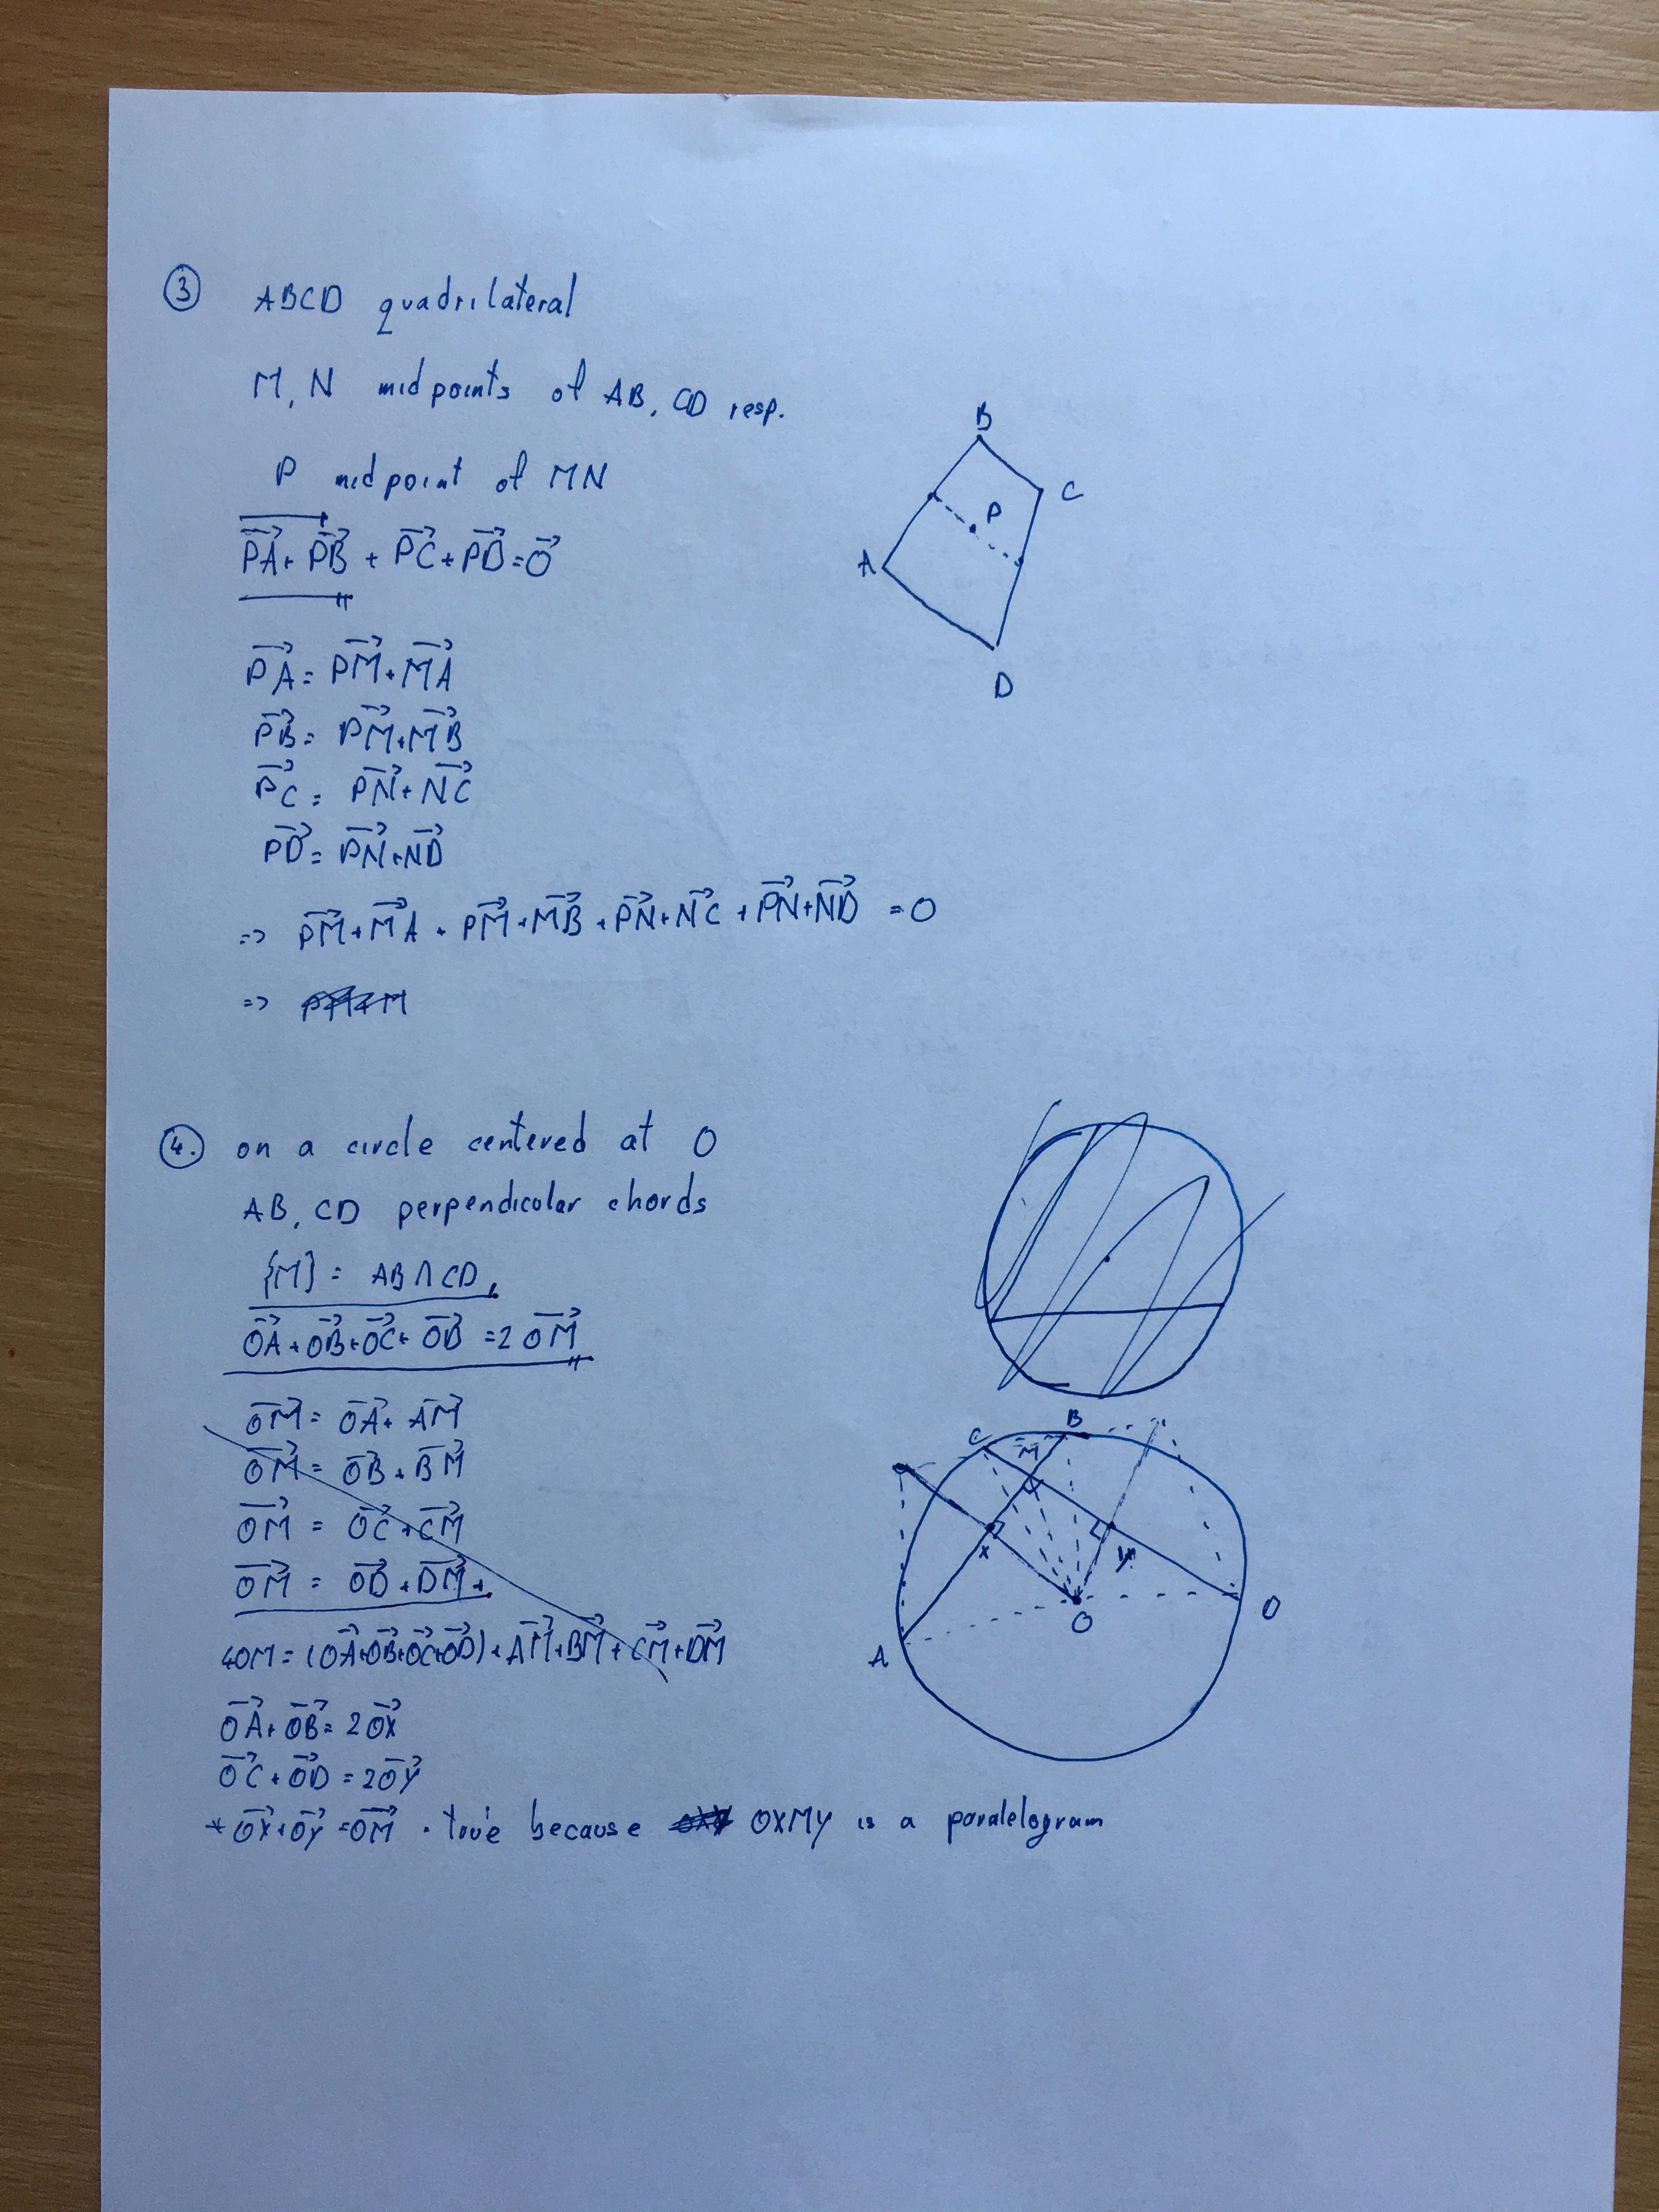 ③ ABCD quadrilateral
M, N midpoints of AB, CD resp.
P midpoint of MN
PA⃗ + PB⃗ + PC⃗ + PD⃗ = 0⃗
PA⃗ = PM⃗ + MA⃗
PB⃗ = PM⃗ + MB⃗
PC⃗ = PN⃗ + NC⃗
PD⃗ = PN⃗ + ND⃗
=> PM⃗ + MA⃗ + PM⃗ + MB⃗ + PN⃗ + NC⃗ + PN⃗ + ND⃗ = 0
=>
B
C
P
A
D
④. on a circle centered at O
AB, CD perpendicular chords
{M} = AB ∩ CD,
OA⃗ + OB⃗ + OC⃗ + OD⃗ = 2 OM⃗
OM⃗ = OA⃗ + AM⃗
OM⃗ = OB⃗ + BM⃗
OM⃗ = OC⃗ + CM⃗
OM⃗ = OD⃗ + DM⃗ +
4OM = (OA⃗+OB⃗+OC⃗+OD⃗) + AM⃗ + BM⃗ + CM⃗ + DM⃗
OA⃗ + OB⃗ = 2OX⃗
OC⃗ + OD⃗ = 2OY⃗
* OX⃗ + OY⃗ = OM⃗ . true because OXMY is a paralelogram
C
B
M
X
Y
O
D
A